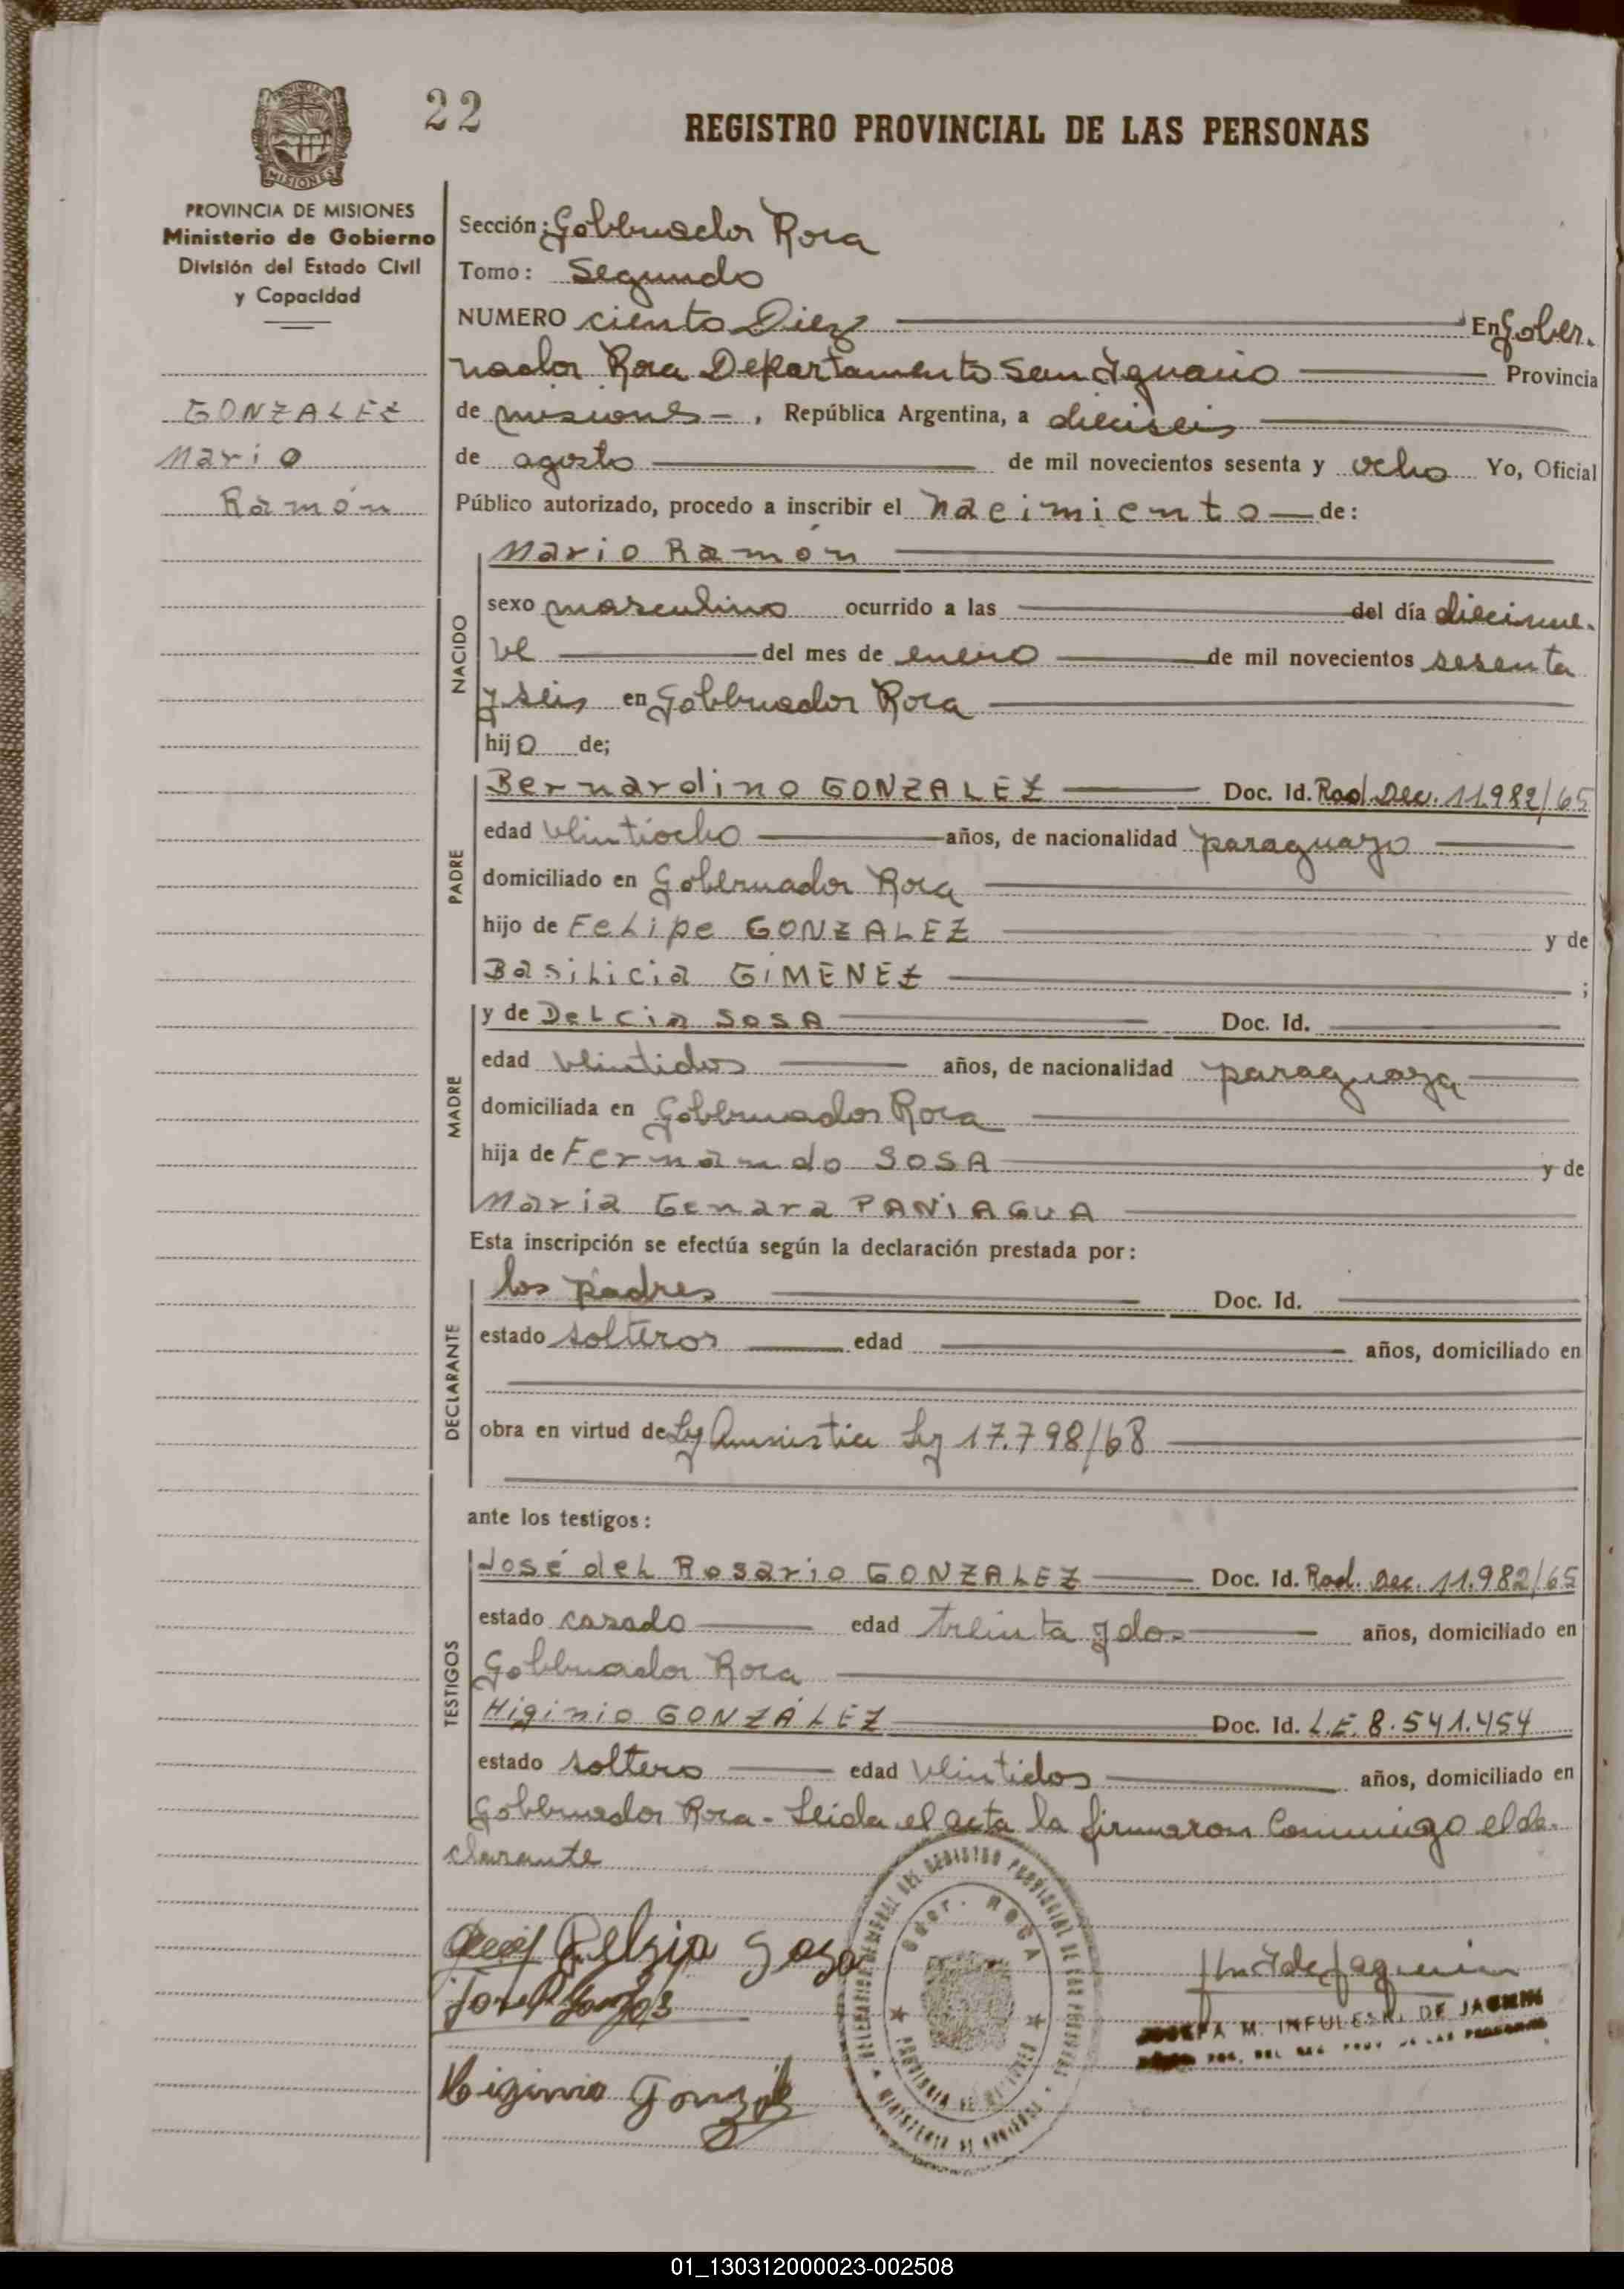 22
REGISTRO PROVINCIAL DE LAS PERSONAS
MISIONES
PROVINCIA DE MISIONES
Ministerio de Gobierno
División del Estado Civil
y Capacidad
GONZALEZ
Mario
Ramón
Sección: Gobernador Roca
Tomo: Segundo
NUMERO ciento Diez En Gober-
nador Roca Departamento San Ignacio Provincia
de misiones -, República Argentina, a dieciseis
de agosto de mil novecientos sesenta y ocho Yo, Oficial
Público autorizado, procedo a inscribir el nacimiento de:
NACIDO
Mario Ramón
sexo masculino ocurrido a las del día diecinue-
ve del mes de enero de mil novecientos sesenta
y seis en Gobernador Roca
hijo de;
PADRE
Bernardino GONZALEZ Doc. Id. Rad. Dec. 11.982/65
edad veintiocho años, de nacionalidad paraguayo
domiciliado en Gobernador Roca
hijo de Felipe GONZALEZ y de
Basilicia GIMENEZ ;
MADRE
y de Delcia SOSA Doc. Id.
edad veintidos años, de nacionalidad paraguaya
domiciliada en Gobernador Roca
hija de Fernando SOSA y de
Maria Genara PANIAGUA
Esta inscripción se efectúa según la declaración prestada por:
DECLARANTE
los padres Doc. Id.
estado solteros edad años, domiciliado en
obra en virtud de Ley Amnistia Ley 17.798/68
ante los testigos:
TESTIGOS
José del Rosario GONZALEZ Doc. Id. Rad. Dec. 11.982/65
estado casado edad treinta y dos años, domiciliado en
Gobernador Roca
Higinio GONZÁLEZ Doc. Id. L.E. 8.541.454
estado soltero edad veintidos años, domiciliado en
Gobernador Roca - Leida el acta la firmaron conmigo el de-
clarante
Delsia Sosa
Higinio
Gdor. ROCA
JOSEFA M. INFULESKI DE JAGMIN
01_130312000023-002508